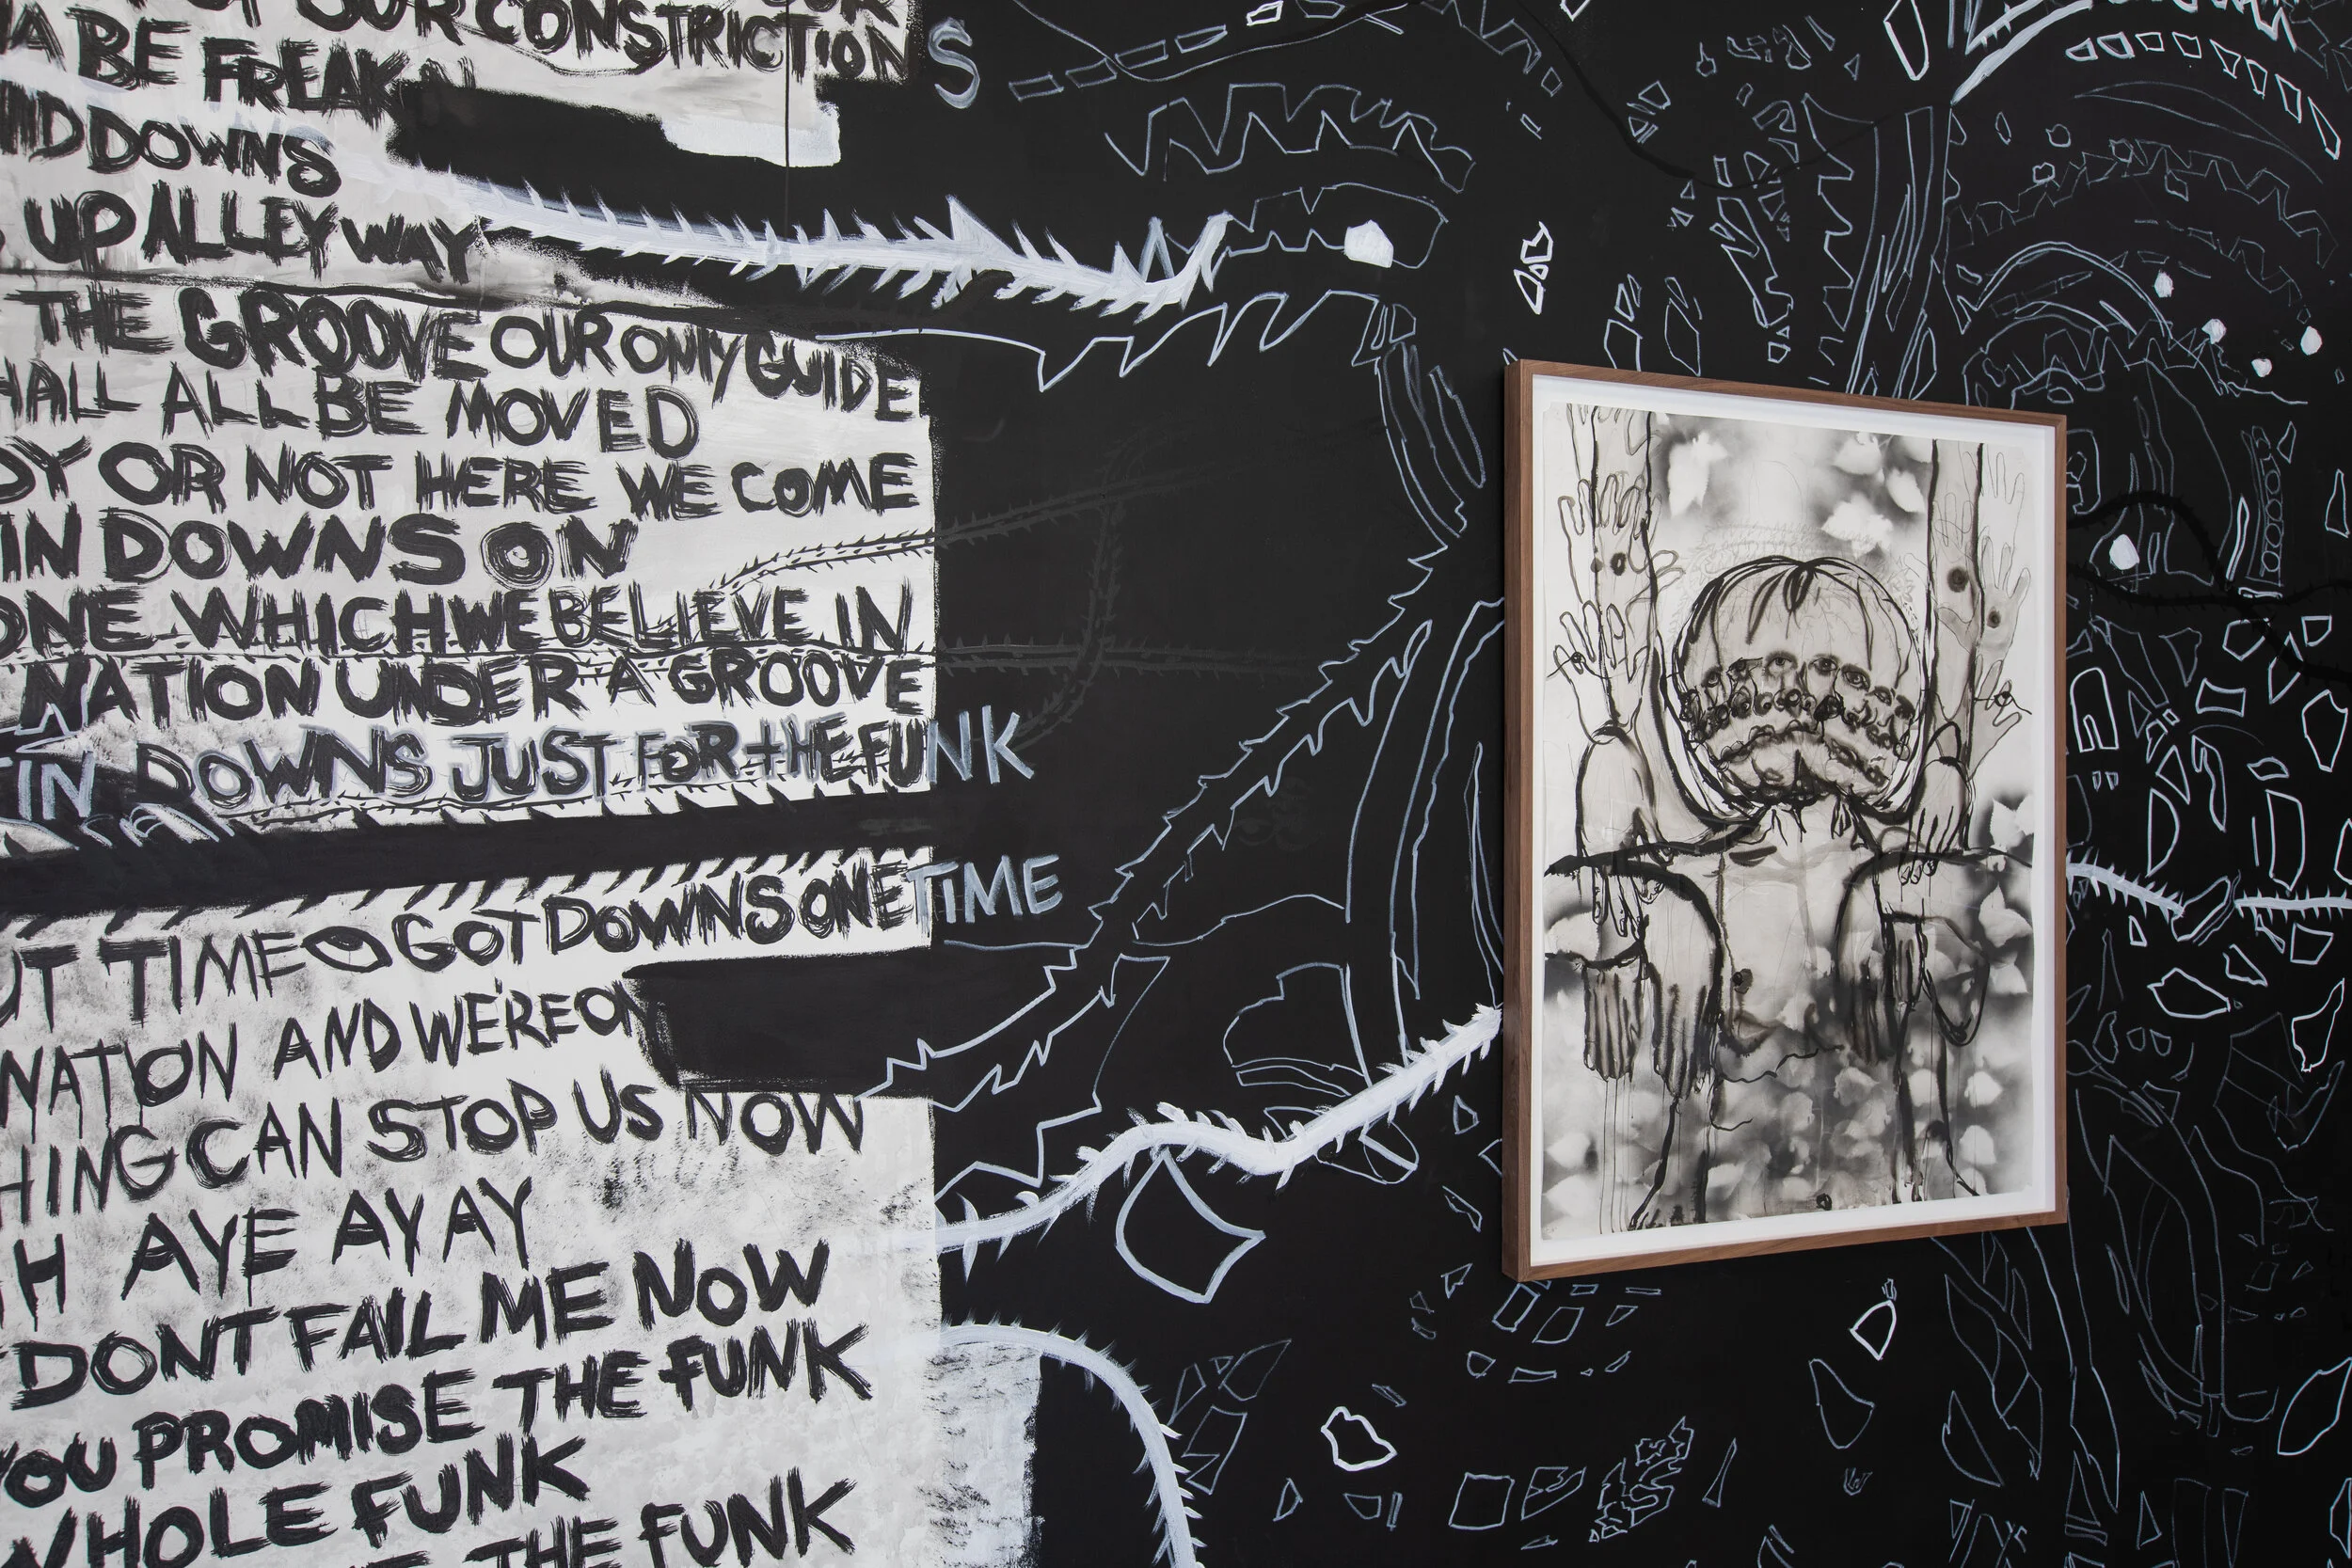 OUR CONSTRICTION
A BE FREAK N
ND DOWNS S
UP ALLEY WAY
THE GROOVE OUR ONLY GUIDE
HALL ALL BE MOVED
DY OR NOT HERE WE COME
IN DOWNS ON
ONE WHICH WE BELIEVE IN
NATION UNDER A GROOVE
TIN DOWNS JUST FOR THE FUNK
UT TIME GOT DOWNS ONE TIME
NATION AND WE'RE ON
HING CAN STOP US NOW
H AYE AY AY
DONT FAIL ME NOW
YOU PROMISE THE FUNK
WHOLE FUNK
THE FUNK